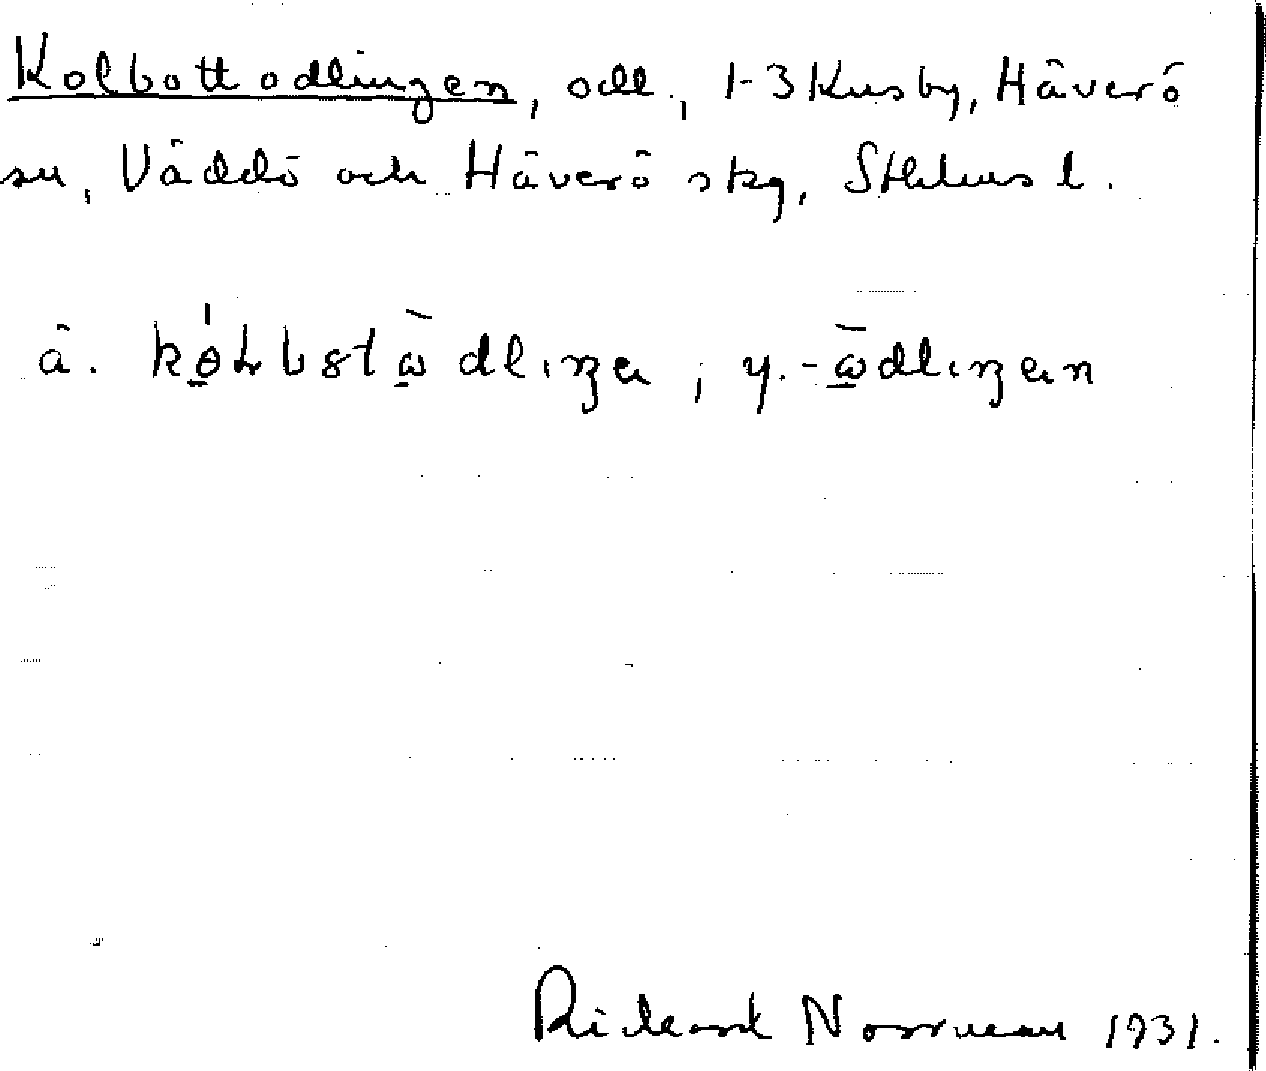 Kolbottodlingen, odl., 1-3 Kusby, Häverö
sn, Väddö och Häverö skg, Sthlms l.
ä. kølbstωdlıŋa, y. -ωdlıŋan
Rickard Norrman 1931.